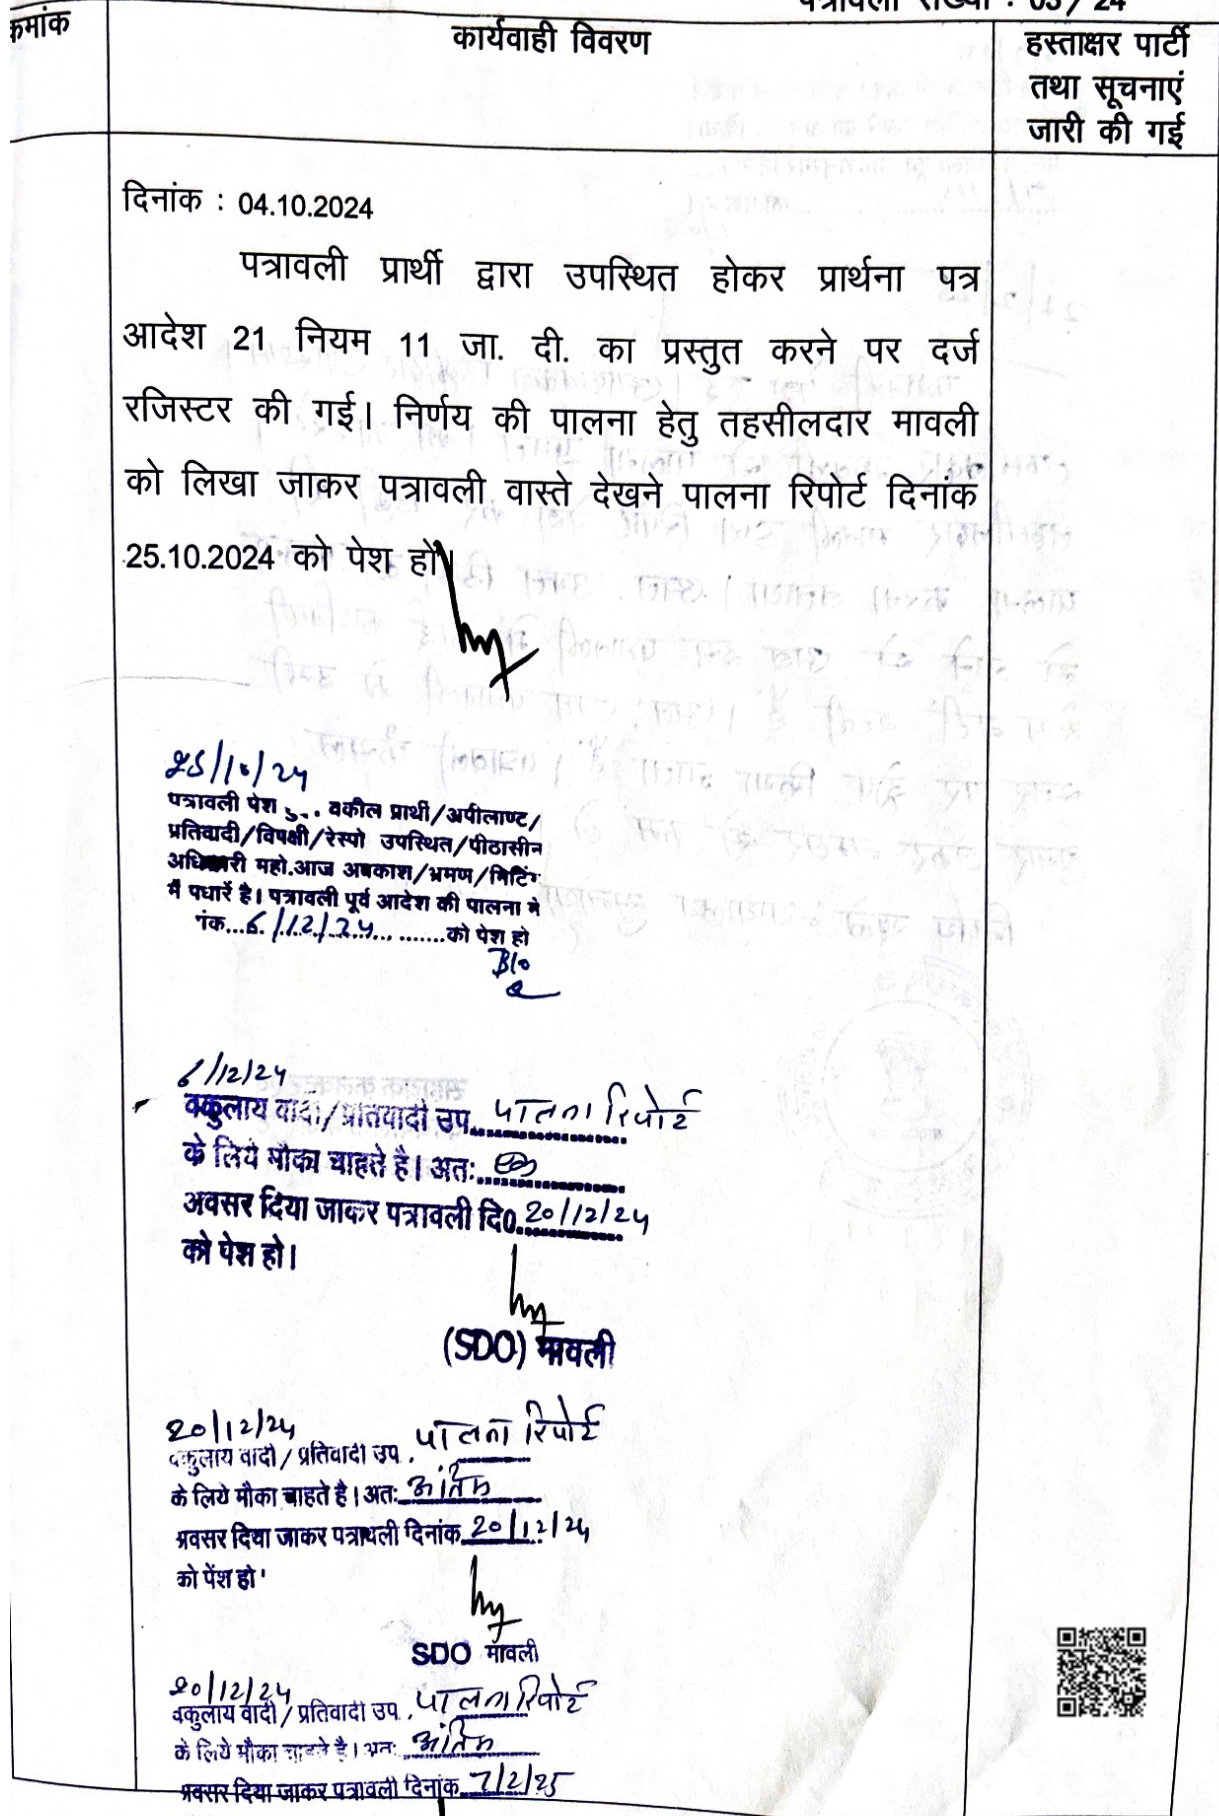 पत्रावली संख्या : 03 / 24
क्रमांक
कार्यवाही विवरण
हस्ताक्षर पार्टी
तथा सूचनाएं
जारी की गई
दिनांक : 04.10.2024
पत्रावली प्रार्थी द्वारा उपस्थित होकर प्रार्थना पत्र
आदेश 21 नियम 11 जा. दी. का प्रस्तुत करने पर दर्ज
रजिस्टर की गई। निर्णय की पालना हेतु तहसीलदार मावली
को लिखा जाकर पत्रावली वास्ते देखने पालना रिपोर्ट दिनांक
25.10.2024 को पेश हो।
25/10/24
पत्रावली पेश हु... वकील प्रार्थी/अपीलाण्ट/
प्रतिवादी/विपक्षी/रेस्पो उपस्थित/पीठासीन
अधिकारी महो.आज अवकाश/भ्रमण/मिटिंग
में पधारें है। पत्रावली पूर्व आदेश की पालना मे
नंक...6/12/24.......को पेश हो
6/12/24
वकुलाय वादी/प्रतिवादी उप. पालना रिपोर्ट
के लिये मौका चाहते है। अतः एक
अवसर दिया जाकर पत्रावली दि0. 20/12/24
को पेश हो।
(SDO) मावली
20/12/24
वकुलाय वादी/प्रतिवादी उप. पालना रिपोर्ट
के लिये मौका चाहते है। अतः अंतिम
अवसर दिया जाकर पत्रावली दिनांक 20/12/24
को पेंश हो
SDO मावली
20/12/24
वकुलाय वादी/प्रतिवादी उप. पालना रिपोर्ट
के लिये मौका चाहते है। अतः अंतिम
अवसर दिया जाकर पत्रावली दिनांक 7/2/25